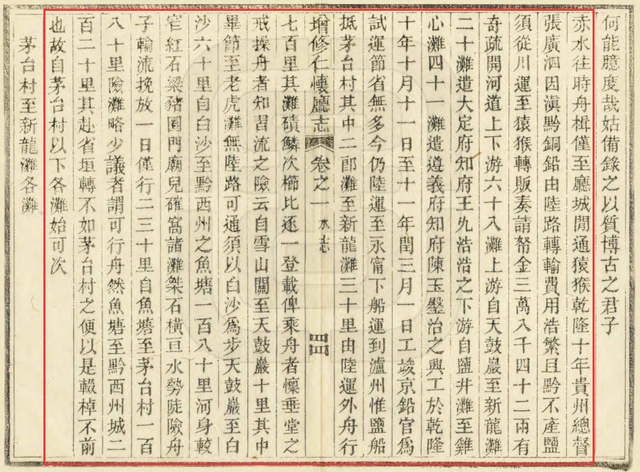 何能臆度哉姑備錄之以質博古之君子
赤水往時舟楫僅至廳城間通猿猴乾隆十年貴州總督
張廣泗因滇黔銅鉛由陸路轉輸費用浩繁且黔不產鹽
須從川運至猿猴轉販奏請帑金三萬八千四十二兩有
奇疏開河道上下游六十八灘上游自天鼓巖至新龍灘
二十灘遣大定府知府王允浩浩之下游自鹽井灘至雞
心灘四十一灘遣遵義府知府陳玉𡐤治之興工於乾隆
十年十月一日至十一年閏三月一日工竣京鉛官爲
試運節省無多今仍陸運至永甯下船運到瀘州惟鹽船
抵茅台村其中二郎灘至新龍灘三十里由陸運外舟行
增修仁懷廳志 卷之一 水志
七百里其灘磧鱗次櫛比逐一登載俾乘舟者懍垂堂之
戒操舟者知習流之險云自雪山關至天鼓巖十里其中
畢節至老虎灘無陸路可通須以白沙爲步天鼓巖至白
沙六十里自白沙至黔西州之魚塘一百八十里河身較
窄紅石梁豬圈門廟兒確窩諸灘桀石橫亘水勢陡險舟
子輸流挽放一日僅行二三十里自魚塘至茅台村一百
八十里險灘略少議者謂可行舟然魚塘至黔西州城二
百二十里其赴省垣轉不如茅台村之便以是輟棹不前
也故自茅台村以下各灘始可次
茅台村至新龍灘各灘